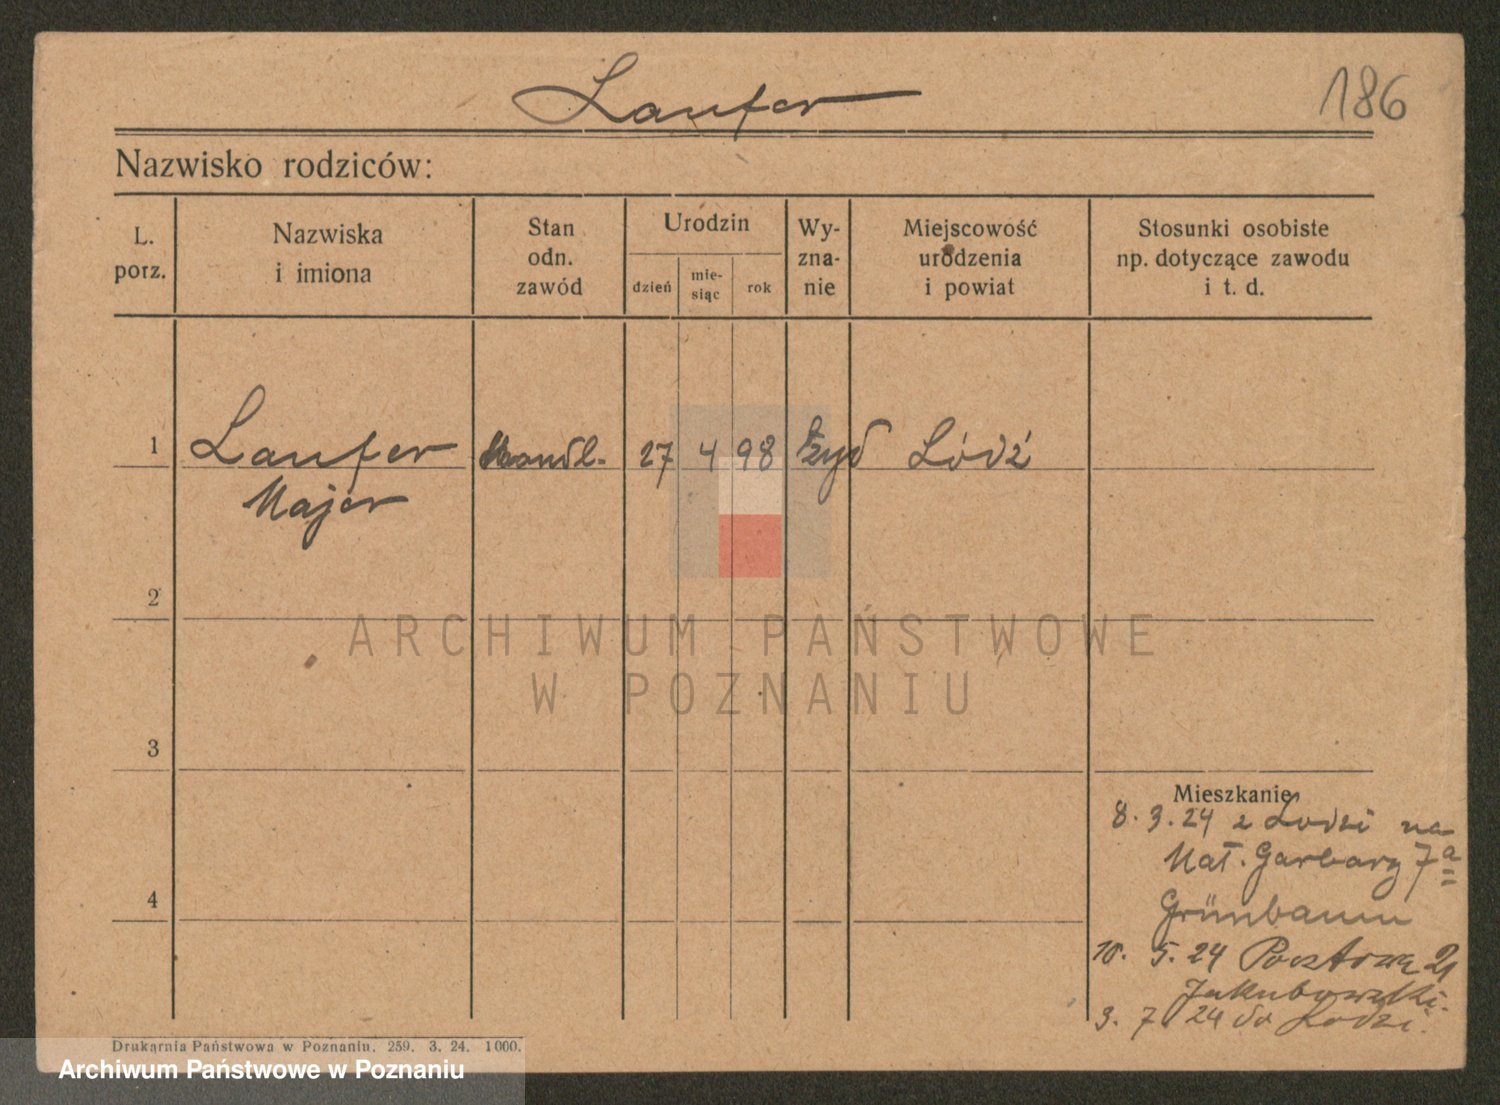 Laufer
186
Nazwisko rodziców:
L. porz.
Nazwiska i imiona
Stan odn. zawód
Urodzin
dzień
mie-siąc
rok
Wy-zna-nie
Miejscowość urodzenia i powiat
Stosunki osobiste np. dotyczące zawodu i t. d.
1 Laufer Handl. 27 4 98 żyd Łódź
Majer
2
3
4
Mieszkanie
8. 3. 24 z Łodzi na
Mał. Garbary 7a
Grünbaum
10. 5. 24 Pocztowa 21
Jakubowski.
3. 7. 24 do Łodzi.
Drukarnia Państwowa w Poznaniu. 259. 3. 24. 1000.
ARCHIWUM PAŃSTWOWE
W POZNANIU
Archiwum Państwowe w Poznaniu